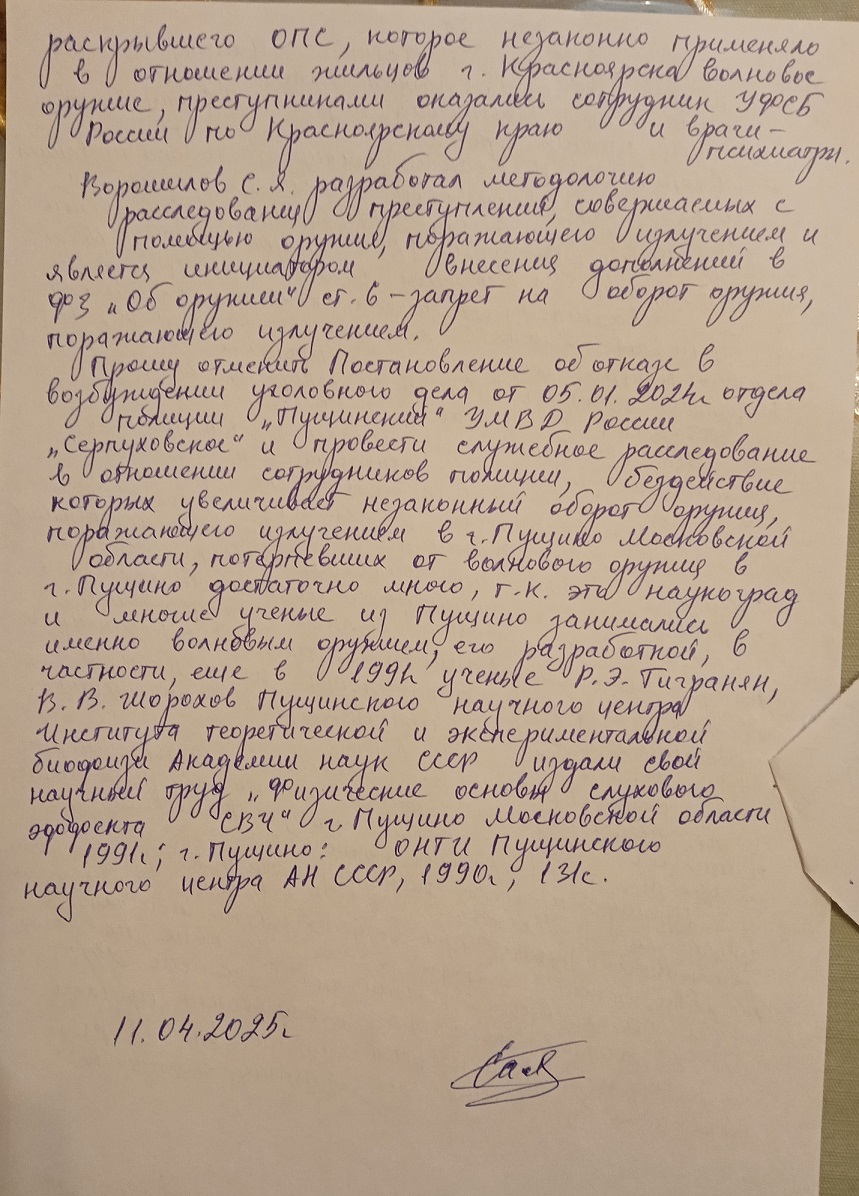 раскрывшего ОПС, которое незаконно применяло
в отношении жильцов г. Красноярска волновое
оружие, преступниками оказались сотрудник УФСБ
России по Красноярскому краю и врачи-
психиатры.
Ворошилов С.Я. разработал методологию
расследования преступлений, совершаемых с
помощью оружия, поражающего излучением и
является инициатором внесения дополнений в
ФЗ „Об оружии" ст. 6 - запрет на оборот оружия,
поражающего излучением.
Прошу отменить Постановление об отказе в
возбуждении уголовного дела от 05.01.2024г отдела
полиции „Пущинский" УМВД России
„Серпуховское" и провести служебное расследование
в отношении сотрудников полиции, бездействие
которых увеличивает незаконный оборот оружия,
поражающего излучением в г. Пущино Московской
области, потерпевших от волнового оружия в
г. Пущино достаточно много, т.к. это наукоград
и многие ученые из Пущино занимались
именно волновым оружием, его разработкой, в
частности, еще в 1991г ученые Р.Э. Тигранян,
В.В. Шорохов Пущинского научного центра
Института теоретической и экспериментальной
биофизи Академии наук СССР издали свой
научный труд „Физические основы слухового
эффекта СВЧ" г. Пущино Московской области
1991г; г. Пущино: ОНТИ Пущинского
научного центра АН СССР, 1990г, 131с.
11.04.2025г